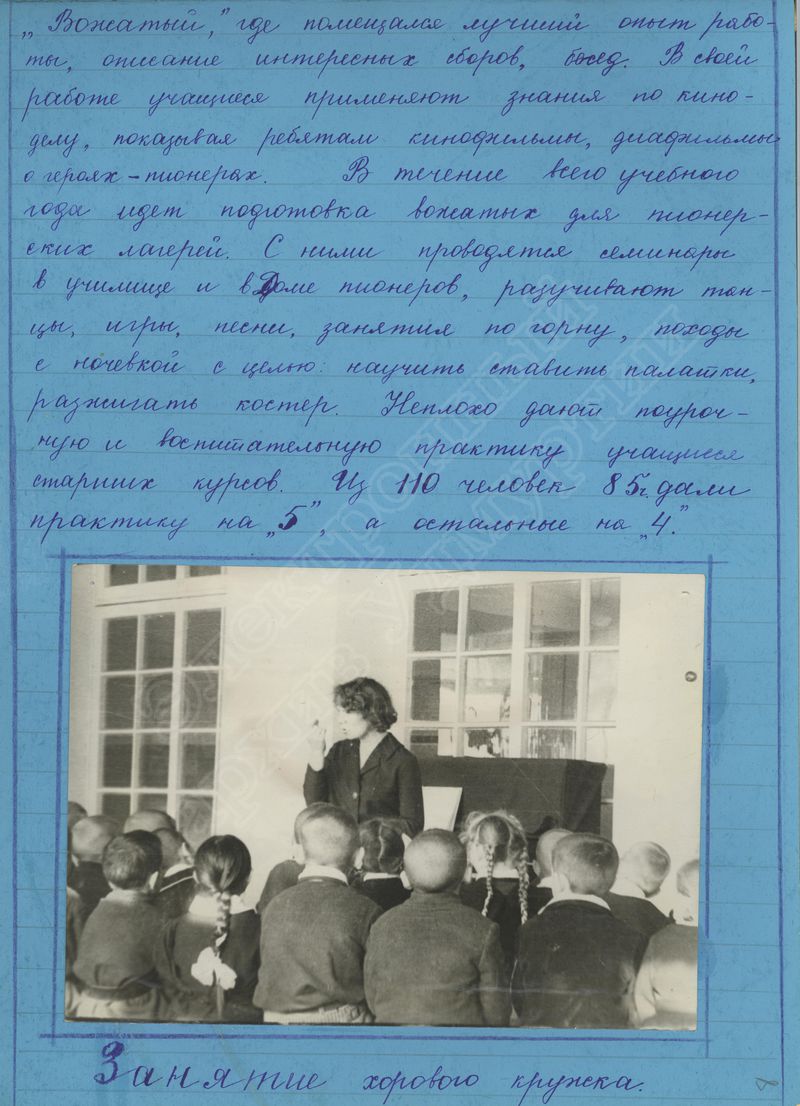 „Вожатый,” где помещался лучший опыт рабо-
ты, описание интересных сборов, бесед. В своей
работе учащиеся применяют знания по кино-
делу, показывая ребятам кинофильмы, диафильмы
о героях-пионерах. В течение всего учебного
года идет подготовка вожатых для пионер-
ских лагерей. С ними проводятся семинары
в училище и в Доме пионеров, разучивают тан-
цы, игры, песни, занятия по горну, походы
с ночевкой с целью: научить ставить палатки,
разжигать костер. Неплохо дают поуроч-
ную и воспитательную практику учащиеся
старших курсов. Из 110 человек 85ч. дали
практику на „5”, а остальные на „4.”
Электронный
архив Удмуртии
Занятие хорового кружка.